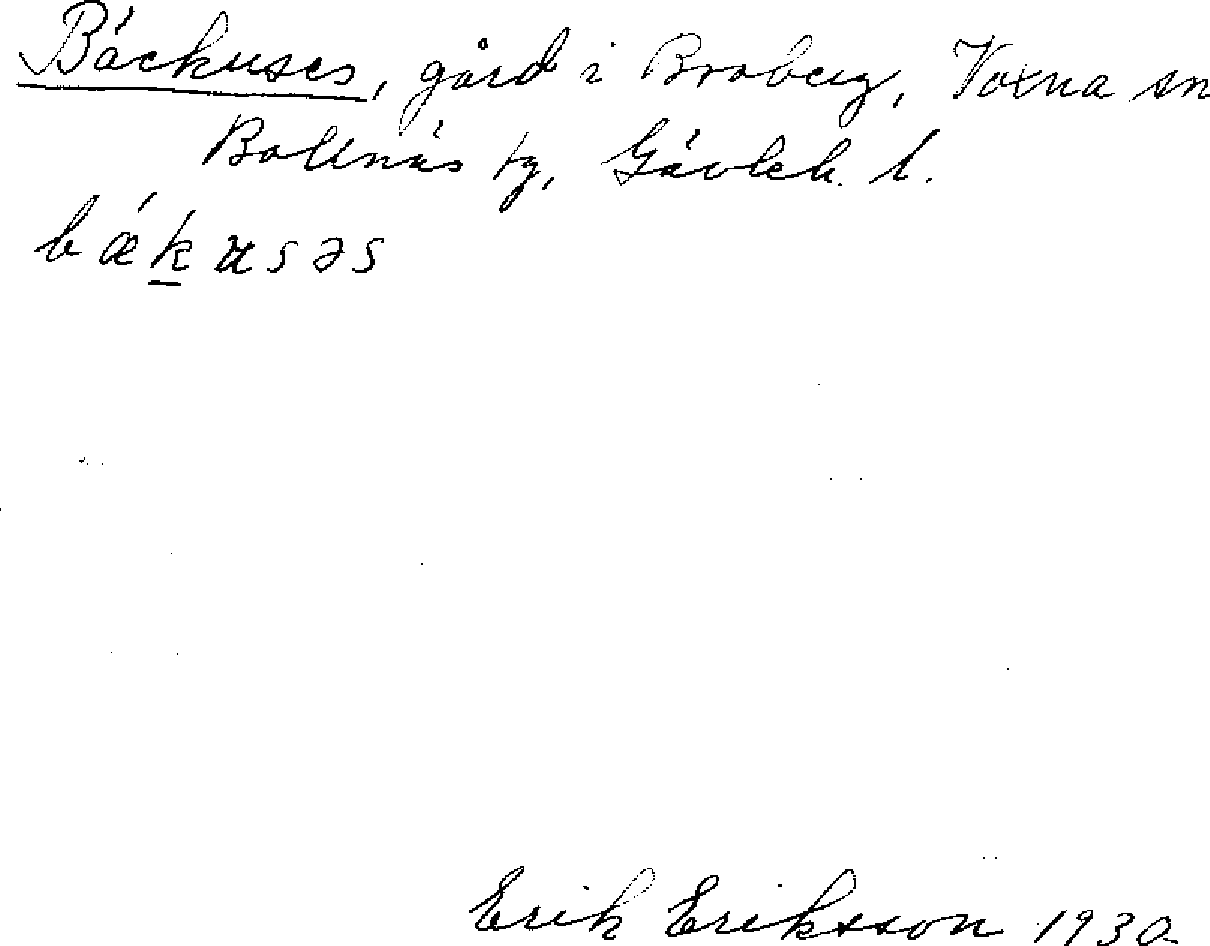 Bäckuses, gård i Broberg, Voxna sn
Bollnäs tg, Gävleb. l.
bǽk̲usəs
Erik Eriksson 1930